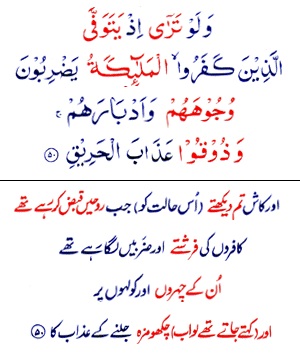 وَلَوْ تَرٰٓى اِذْ يَتَوَفَّى
الَّذِيْنَ كَفَرُوا ۙ الْمَلٰٓئِكَةُ يَضْرِبُوْنَ
وُجُوْهَهُمْ وَاَدْبَارَهُمْ ۚ
وَذُوْقُوْا عَذَابَ الْحَرِيْقِ ﴿۵۰﴾
اور کاش تم دیکھتے (اُس حالت کو) جب روحیں قبض کر رہے تھے
کافروں کی فرشتے اور ضربیں لگا رہے تھے
اُن کے چہروں اور کولہوں پر
اور (کہتے جاتے تھے لو اب) چکھو مزہ جلنے کے عذاب کا ﴿۵۰﴾